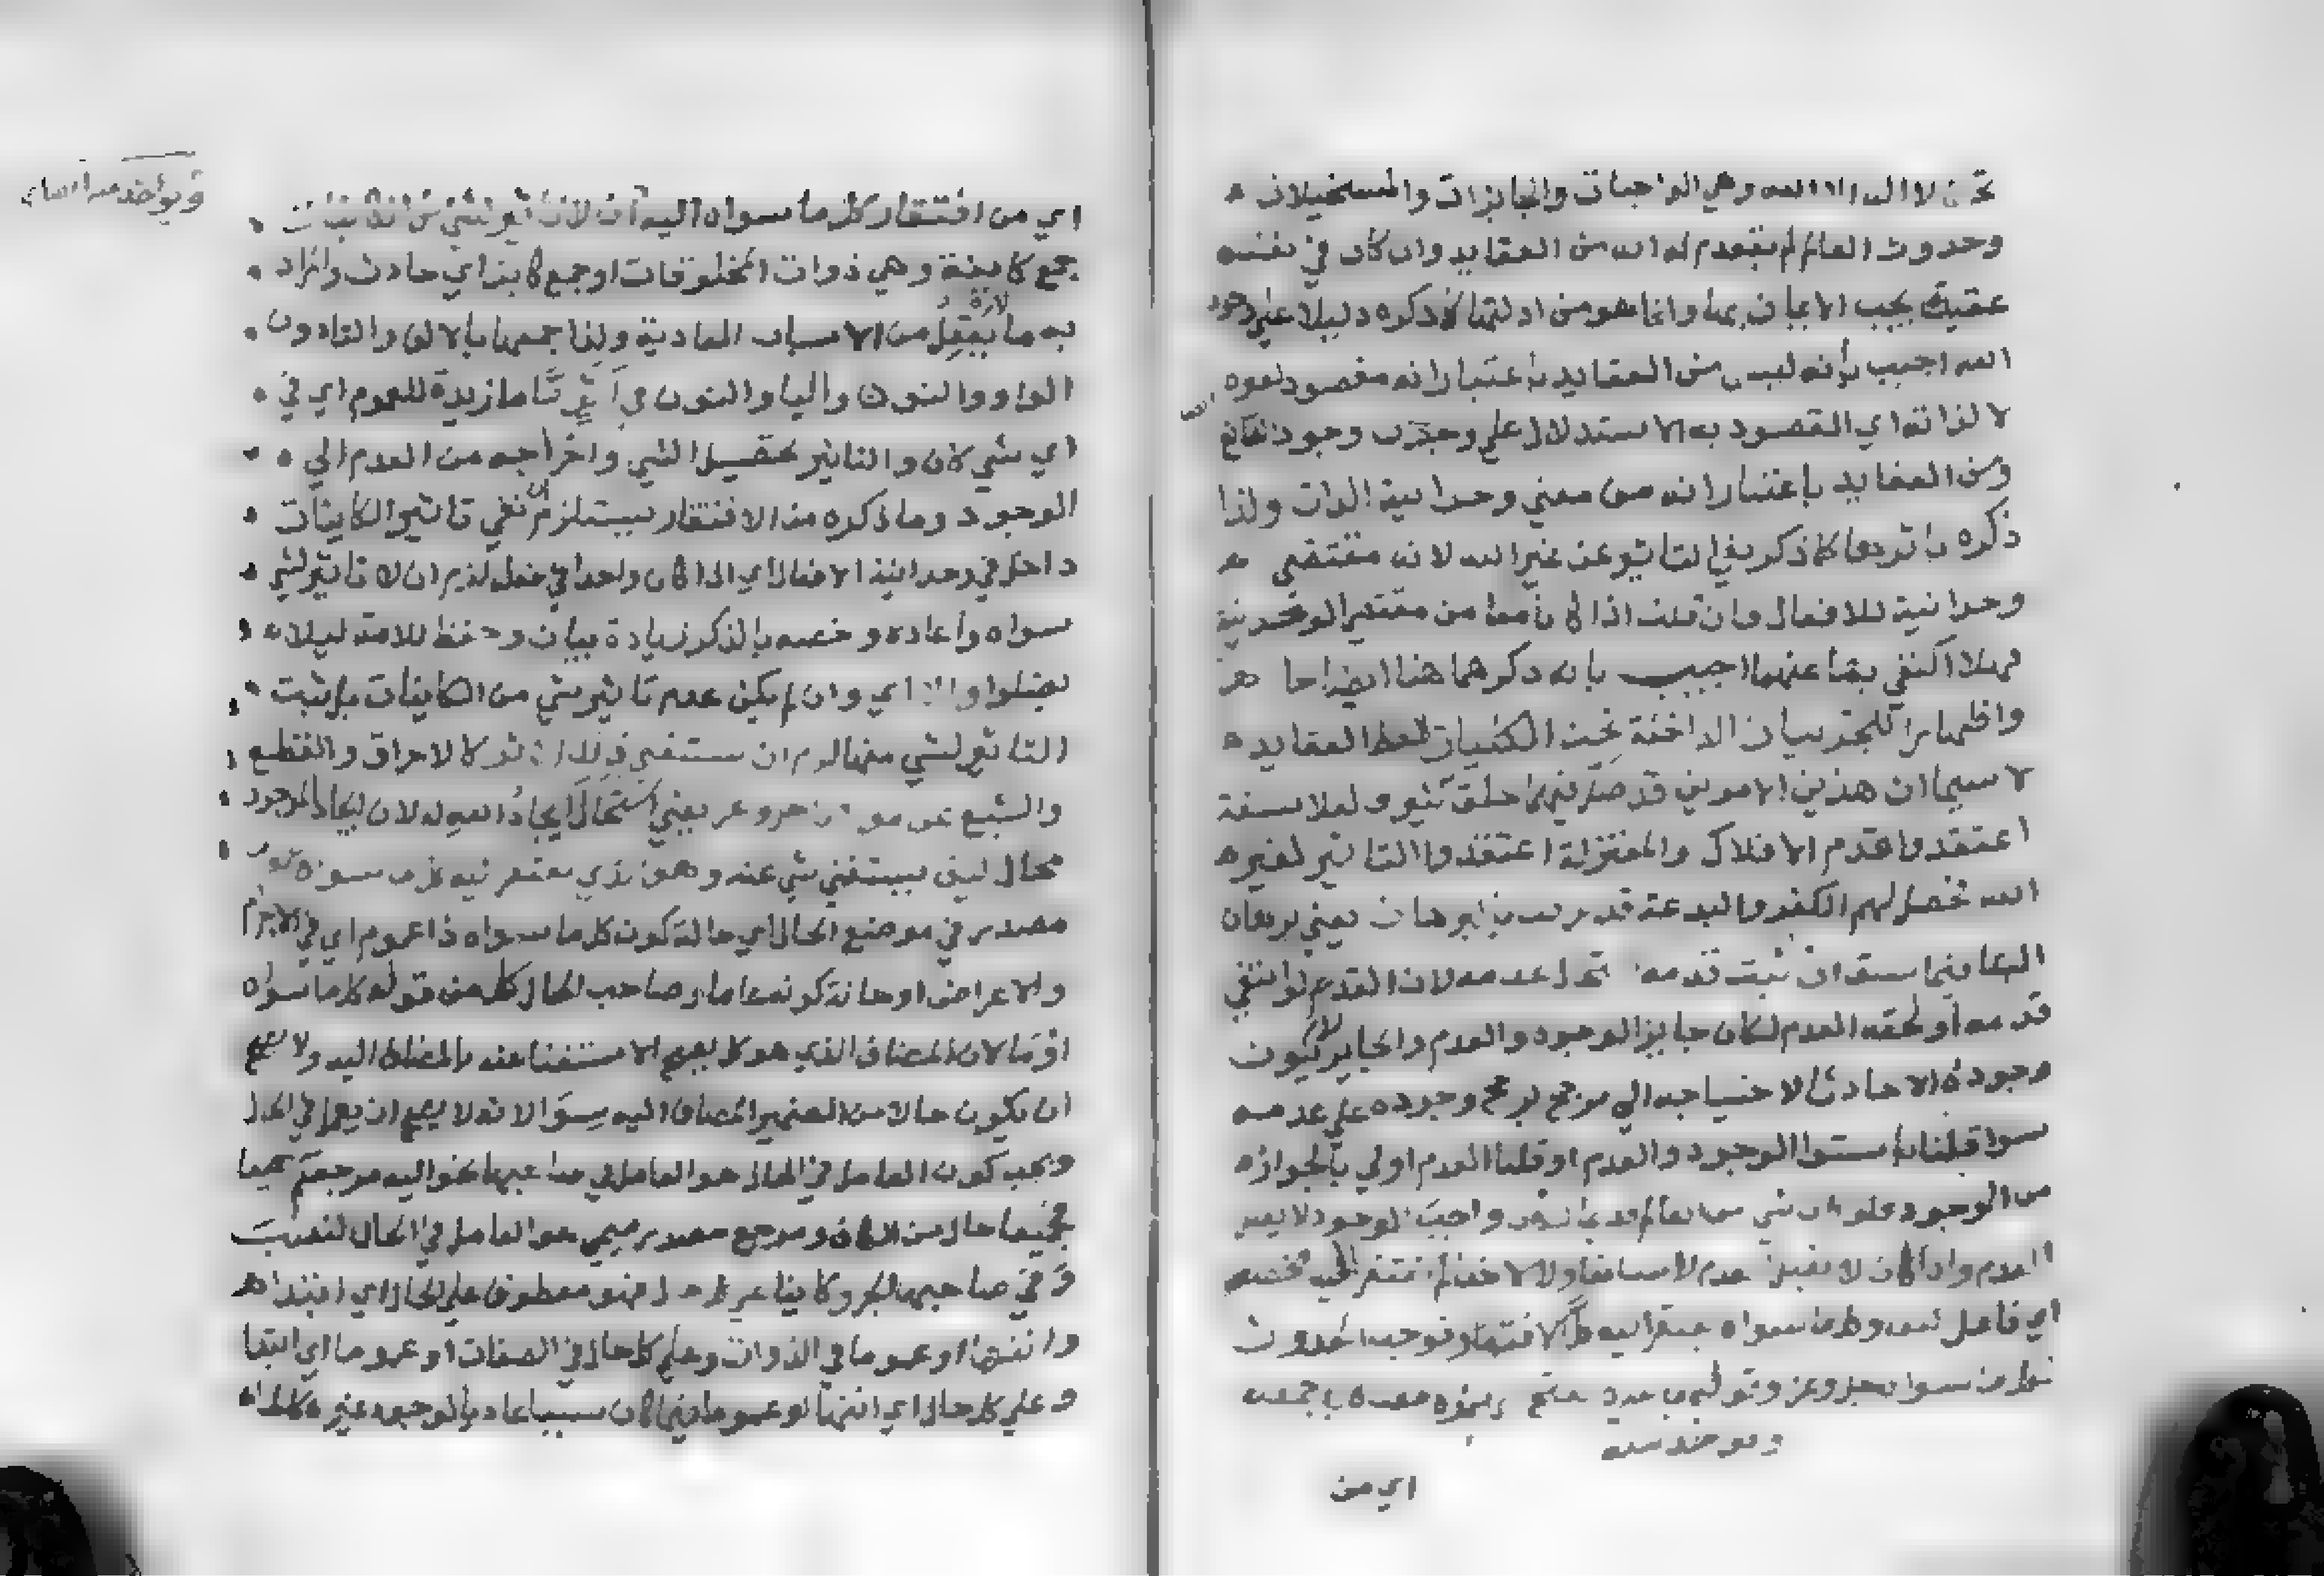 تحت لا اله الا الله وهي الواجبات والجايزات والمستحيلات
وحدوث العالم لم يتقدم له انه من العقايد وان كان في نفسه
عقيدة يجب الايمان بها وانما هو من ادلتها لانه ذكره دليلا علي وجود
الله اجيب بأنه ليس من العقايد باعتبار انه مقصود لغيره
لا لذاته اي المقصود به الاستدلال علي وجوب وجود الصانع
ومن العقايد باعتبار انه من معني وحدانية الذات ولذا
ذكره باثرها كما ذكر نفي التاثير عن غير الله لانه مقتضي
وحدانية للافعال فان قلت اذا كانا معا من مقتضي الوحدانية
فهلا اكتفي بها عنهما اجيب بانه ذكرهما هنا ايضاحا
واظهارا للجزييات الداخلة تحت الكليات لحفظ العقايد
لا سيما ان هذين الامرين قد ضل فيهما خلق كثير فالفلاسفة
اعتقدوا قدم الافلاك والمعتزلة اعتقدوا التاثير لغير
الله فحصل لهم الكفر والبدعة قد عرفت بالبرهان يعني برهان
البقا فيما سبق ان من ثبت قدمه استحال عدمه لان القدم لو انتفي
قدمه او لحقه العدم لكان جايز الوجود والعدم والجايز لا يكون
وجوده الا حادثا لاحتياجه الي مرجح يرجح وجوده علي عدمه
سوا قلنا باستوا الوجود والعدم او قلنا العدم اولي بالجواز
من الوجود فلو كان شي من العالم قديما لكان واجب الوجود لا يقبل
العدم واذا كان لا يقبل العدم لا سابقا ولا لاحقا لم يفتقر الي مخصص
اي فاعل كيف وكل ما سواه مفتقر اليه كل الافتقار فوجب الحدوث
لكل ما سواه جل وعز
ويوخذ منه
اي من
ويؤخذ منه ايضا
اي من افتقار كل ما سواه اليه ان لا تاثير لشي من الكاينات
جمع كاينة وهي ذوات المخلوقات او جمع كاين اي حادث والمراد
به ما يعقل من الاسباب العادية ولذا جمعها بالالف والتا دون
الواو والنون واليا والنون في اثر مّا ما زيدة للعموم اي في
اي شي كان والتاثير تحصيل الشي واخراجه من العدم الي
الوجود وما ذكره من الافتقار يستلزم ان نفي تاثير الكاينات
داخل في وحدانية الافعال اي اذا كان واحدا في فعل لزم ان لا تاثير لشي
سواه وأعاده وخصه بالذكر زيادة بيان وحفظ للامة ليلا
يضلوا والا اي وان لم يكن عدم تاثير شي من الكاينات بل ثبت
التاثير لشي منها لزم ان يستغني ذلك الاثر كالاحراق والقطع
والشبع عن مولانا جل وعز يعني استحال ايجاد الله له لان ايجاد الموجود
محال كيف يستغني شي عنه وهو الذي يفتقر اليه كل ما سواه عموما
مصدر في موضع الحال اي حالة كون كل ما سواه ذا عموم اي في الاجرام
والاعراض او حالة كونه عاما وصاحب الحال كل من قوله كل ما سواه
او ما لان المضاف الذي هو كل يصح الاستغنا عنه بالمضاف اليه ولا يصح
ان يكون حالا من الضمير المضاف اليه سِوَا لانه لا يصح ان يعمل في الحال
ويجب كون العامل في الحال هو العامل في صاحبها نحو اليه مرجعكم جميعا
فجميعا حال من الكاف ومرجع مصدر ميمي هو العامل في الحال النصب
وفي صاحبها الجر وكاينا علي كل حال فهو معطوف علي الحال اي ابتدا
وانتها او عموما في الذوات وعلي كل حال في الصفات او عموما اي ابتدا
وعلي كل حال اي انتها او عموما فيما كان سببا عاديا لوجود غيره كالماء